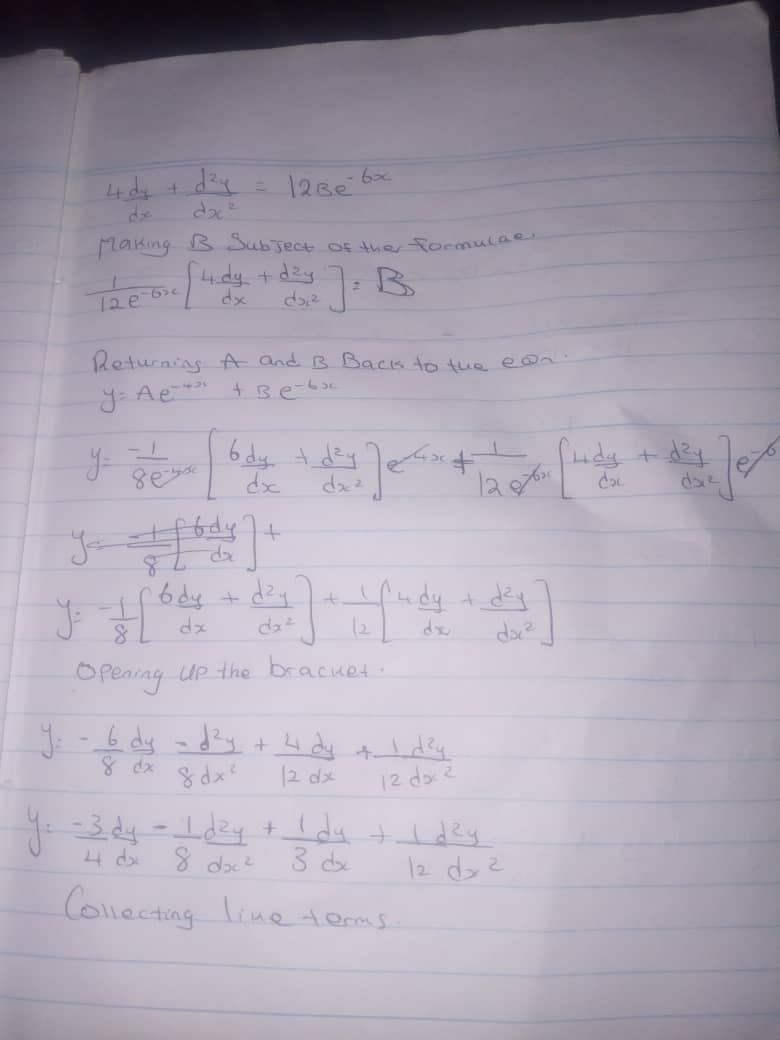 4dy/dx + d²y/dx² = 12Be^-6x
Making B Subject of the formulae.
1/12e^-6x [4dy/dx + d²y/dx²] = B
Returning A and B Back to the eqn.
y= Ae^-4x + Be^-6x
y= -1/8e^-4x [6dy/dx + d²y/dx²] e^-4x + 1/12e^-6x [4dy/dx + d²y/dx²] e^-6
y= -1/8 [6dy/dx] +
y= -1/8 [6dy/dx + d²y/dx²] + 1/12 [4dy/dx + d²y/dx²]
Opening up the bracket.
y= -6/8 dy/dx - d²y/8dx² + 4/12 dy/dx + 1/12 d²y/dx²
y= -3/4 dy/dx - 1/8 d²y/dx² + 1/3 dy/dx + 1/12 d²y/dx²
Collecting like terms.